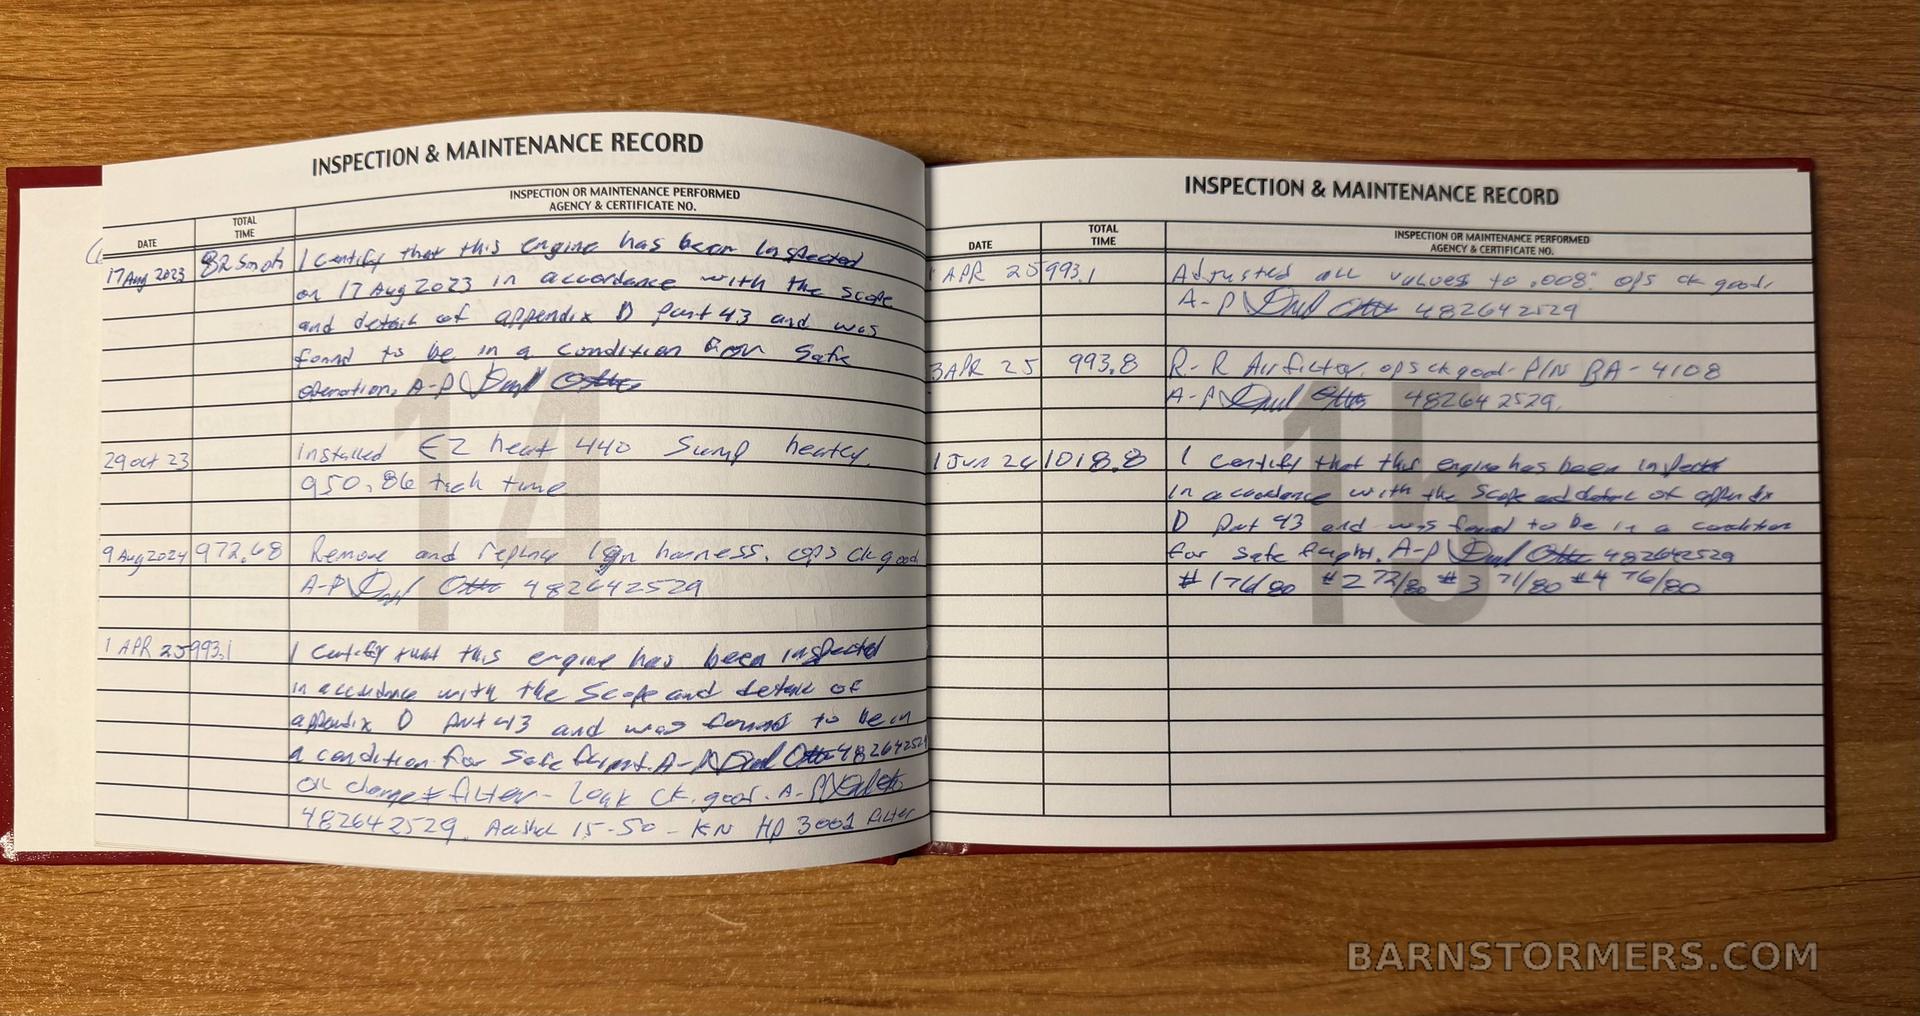 INSPECTION & MAINTENANCE RECORD
DATE
TOTAL TIME
INSPECTION OR MAINTENANCE PERFORMED
AGENCY & CERTIFICATE NO.
17 Aug 2023 I certify that this engine has been inspected
on 17 Aug 2023 in accordance with the scope
and detail of appendix D part 43 and was
found to be in a condition for safe
operation. A-P
29 oct 23 Installed EZ heat 440 Sump heater.
950.86 tach time
9 Aug 2024 972.68 Remove and replace Ign harness. ops ck good
A-P 482642529
1 APR 25 993.1 I certify that this engine has been inspected
in accordance with the scope and detail of
appendix D part 43 and was found to be in
a condition for safe flight. A-P 482642529
Oil change & filter - leak ck. good. A-P
482642529. 15-50 - KN HP 3001 filter
14
INSPECTION & MAINTENANCE RECORD
DATE
TOTAL TIME
INSPECTION OR MAINTENANCE PERFORMED
AGENCY & CERTIFICATE NO.
1 APR 25 993.1 Adjusted all valves to .008" ops ck good.
A-P 482642529
3 APR 25 993.8 R-R Air filter. ops ck good - P/N BA-4108
A-P 482642529.
1 Jun 26 1018.8 I certify that this engine has been inspected
in accordance with the scope and detail of appendix
D part 43 and was found to be in a condition
for safe flight. A-P 482642529
#1 76/80 #2 72/80 #3 71/80 #4 76/80
15
BARNSTORMERS.COM